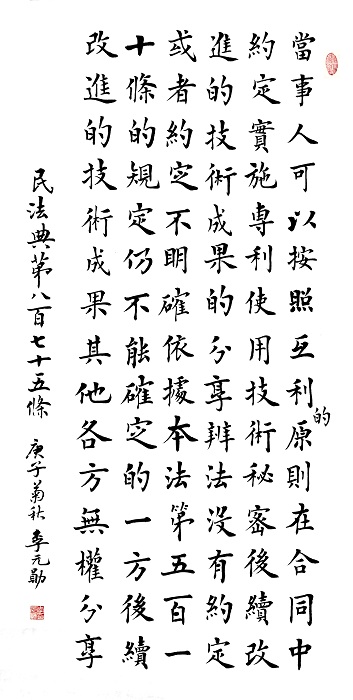 當事人可以按照互利的原則在合同中
約定實施專利使用技術秘密後續改
進的技術成果的分享辦法沒有約定
或者約定不明確依據本法第五百一
十條的規定仍不能確定的一方後續
改進的技術成果其他各方無權分享
民法典第八百七十五條 庚子菊秋 李元勛